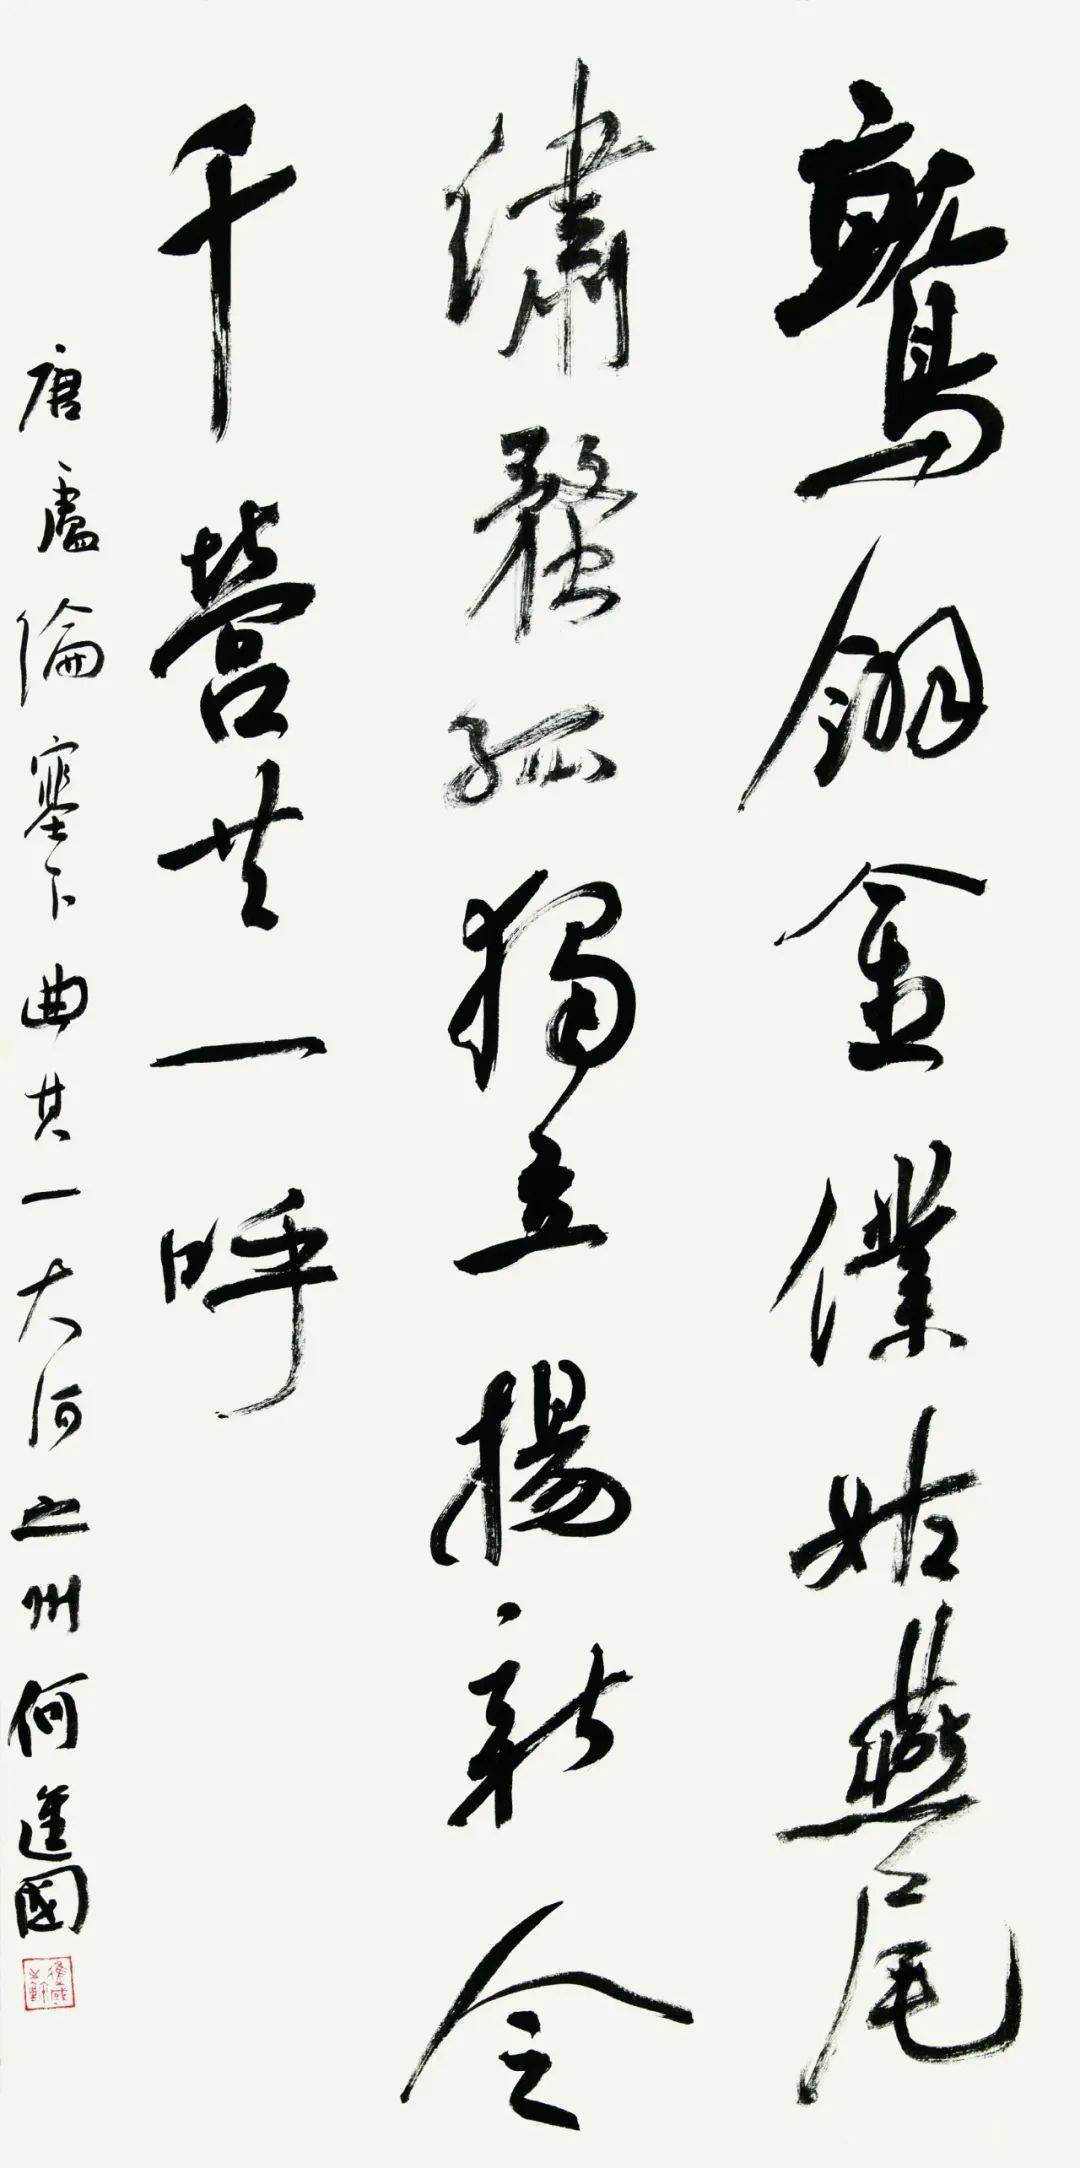 鷲翎金僕姑燕尾
繡蝥弧獨立揚新令
千營共一呼
唐盧倫塞下曲其一大河之州何進國